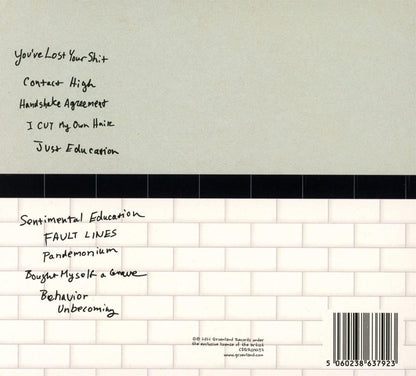 You've Lost Your Shit
Contact High
Handshake Agreement
I CUT My Own Hair
Just Education
Sentimental Education
FAULT LINES
Pandemonium
Bought Myself a Grave
Behavior
Unbecoming
Groenland Records under
the exclusive license of the artist
www.groenland.com
5 060238 637923